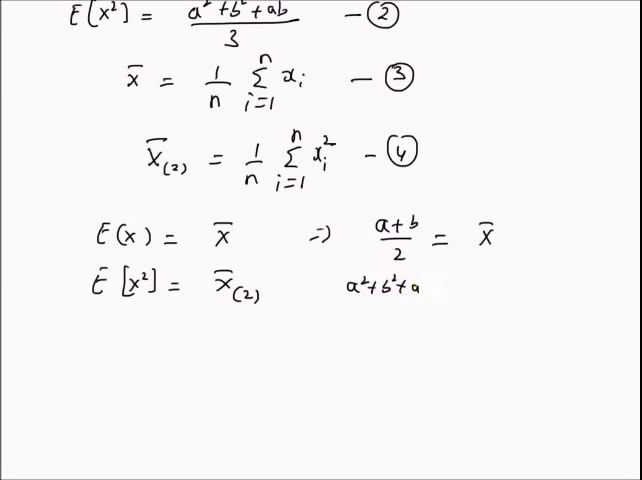 E[x²] = a² + b² + ab / 3 — ②
x̄ = 1/n Σ_{i=1}^{n} xᵢ — ③
X̄₍₂₎ = 1/n Σ_{i=1}^{n} xᵢ² — ④
E(x) = X̄ ⇒ a+b / 2 = X̄
E[x²] = X̄₍₂₎ a²+b²+a